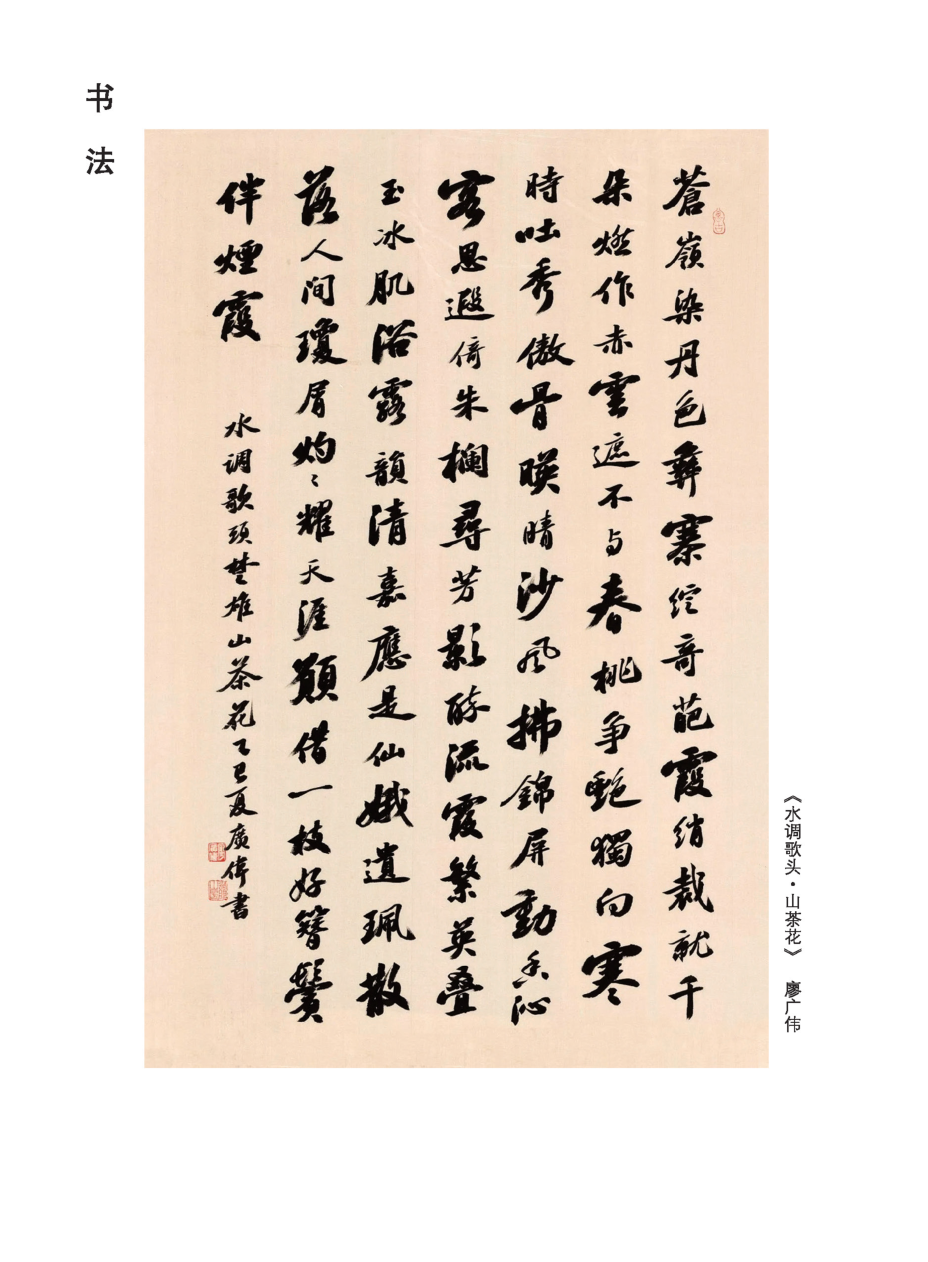 书法
蒼嶺染丹色彝寨綻奇葩霞绡裁就千
朵燃作赤雲遮不与春桃争艷獨向寒
時吐秀傲骨暎晴沙風拂錦屏動香沁
客思遐倚朱欄尋芳影醉流霞繁英叠
玉冰肌浴露韻清嘉應是仙娥遺珮散
落人间瓊屑灼〻耀天涯願借一枝好簪鬢
伴煙霞
水调歌頭楚雄山茶花乙巳夏廣偉書
《水调歌头·山茶花》 廖广伟